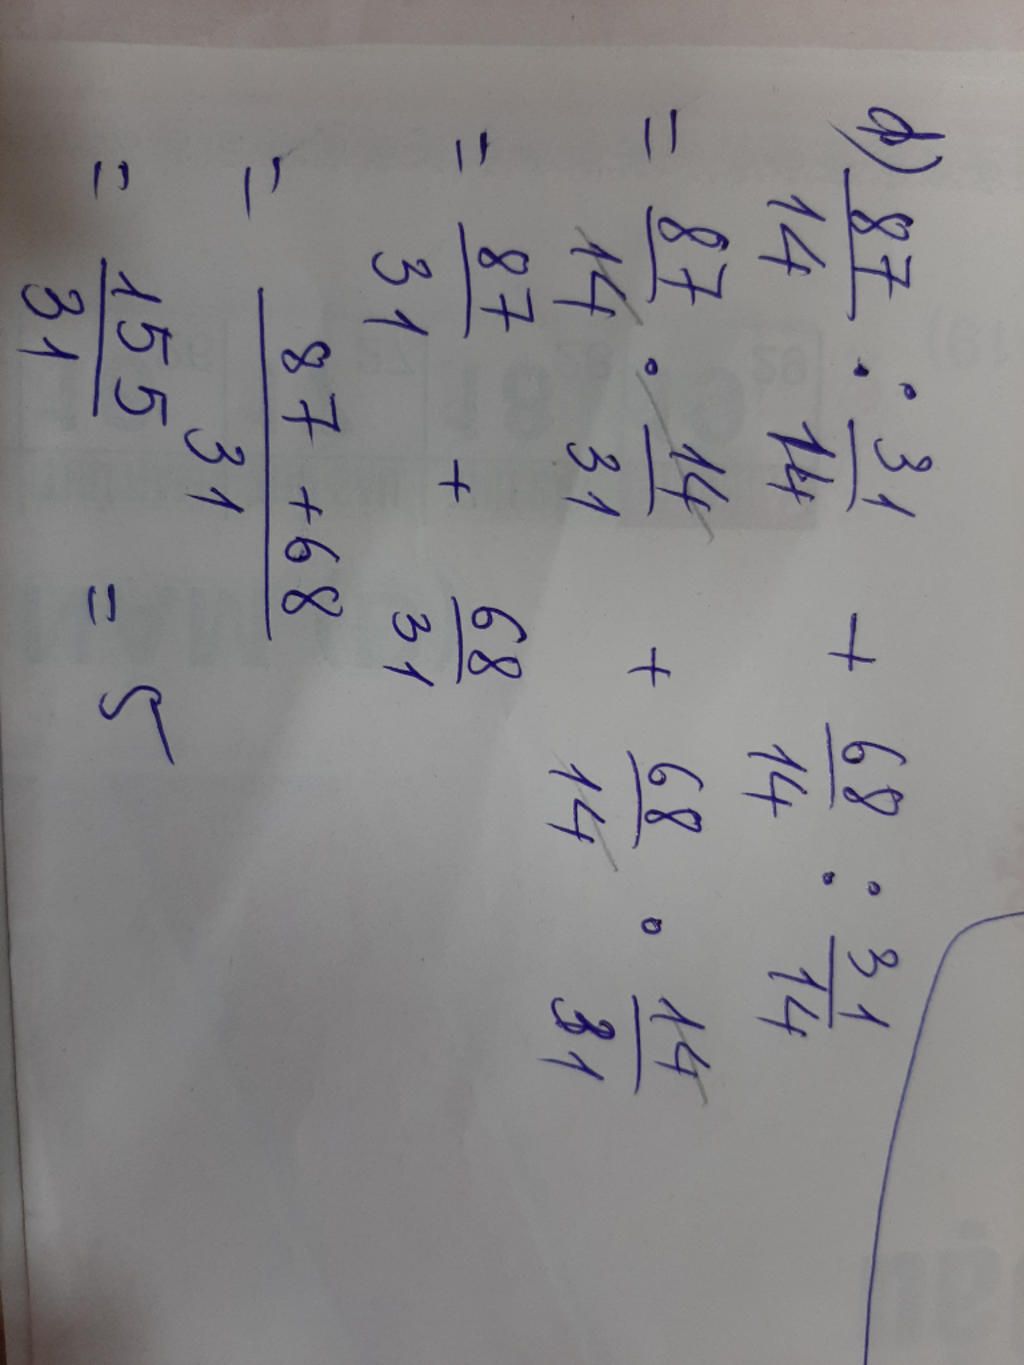 b) 87/14 : 31/14 + 68/14 : 31/14
= 87/14 . 14/31 + 68/14 . 14/31
= 87/31 + 68/31
= 87 + 68/31
= 155/31 = 5